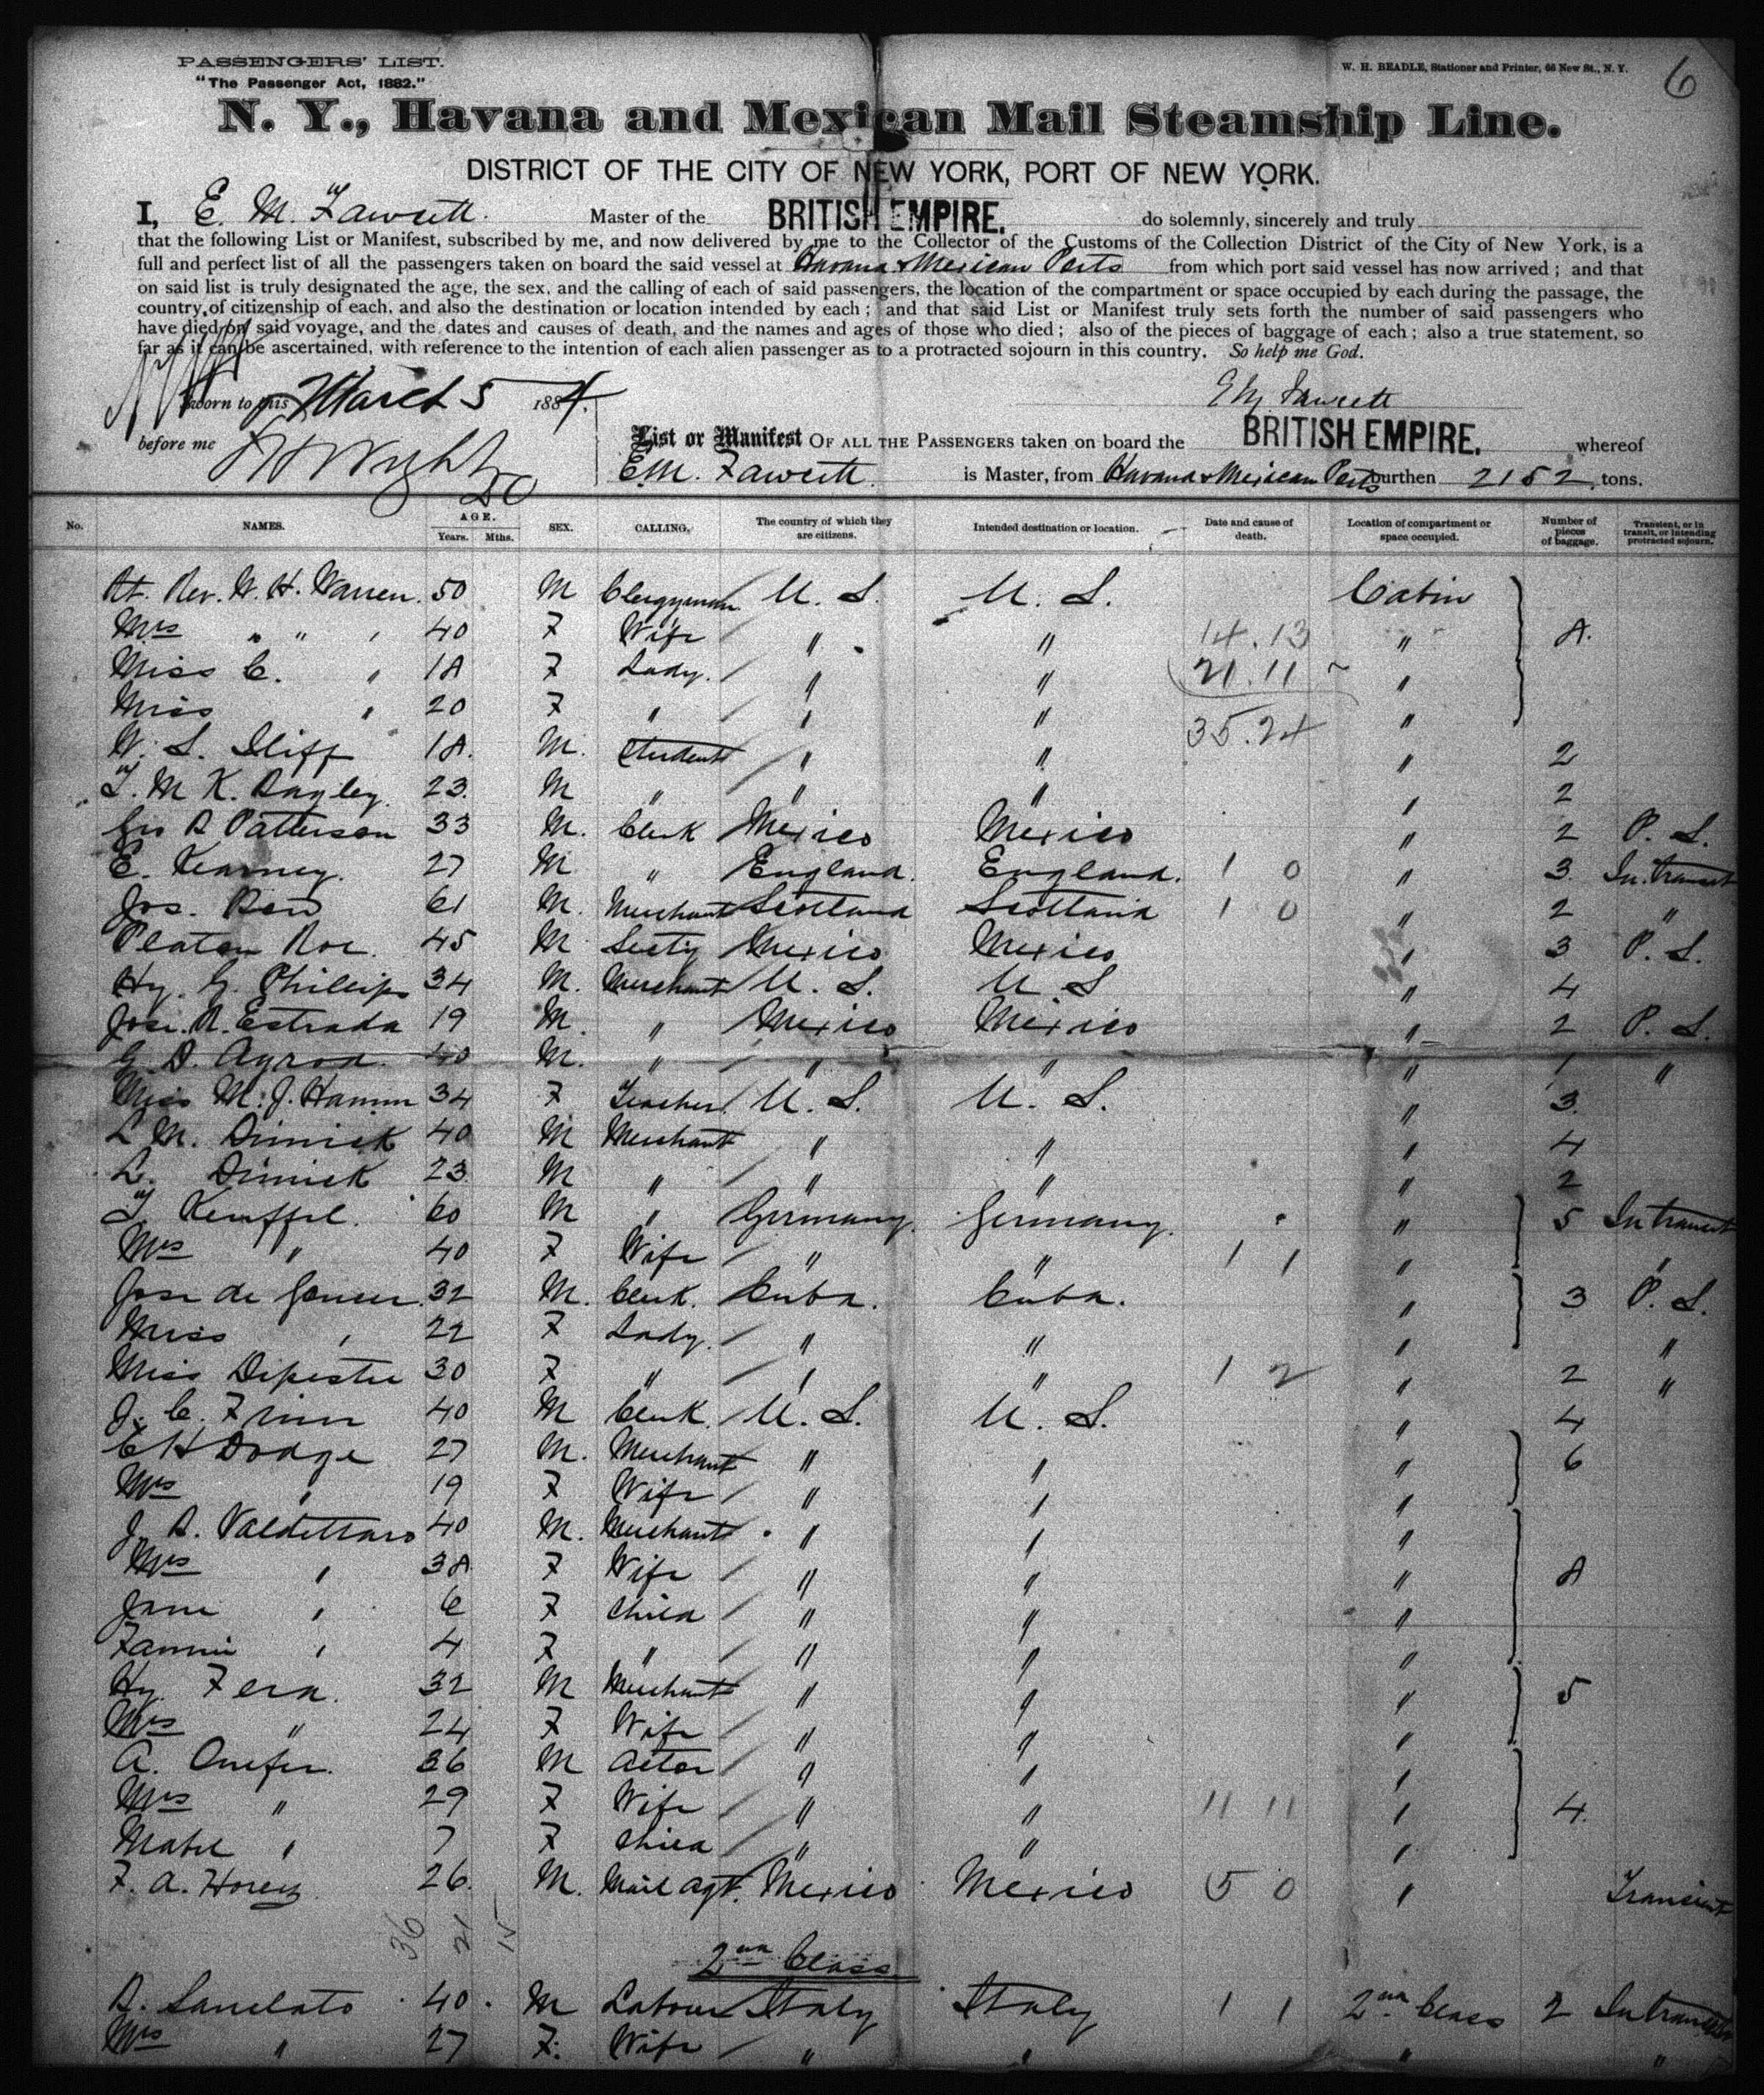 PASSENGERS' LIST.
"The Passenger Act, 1882."
W. H. BEADLE, Stationer and Printer, 66 New St., N. Y.
6
N. Y., Havana and Mexican Mail Steamship Line.
DISTRICT OF THE CITY OF NEW YORK, PORT OF NEW YORK.
I, E. M. Fawcett. Master of the BRITISH EMPIRE. do solemnly, sincerely and truly
that the following List or Manifest, subscribed by me, and now delivered by me to the Collector of the Customs of the Collection District of the City of New York, is a
full and perfect list of all the passengers taken on board the said vessel at Havana & Mexican Ports from which port said vessel has now arrived; and that
on said list is truly designated the age, the sex, and the calling of each of said passengers, the location of the compartment or space occupied by each during the passage, the
country of citizenship of each, and also the destination or location intended by each; and that said List or Manifest truly sets forth the number of said passengers who
have died on said voyage, and the dates and causes of death, and the names and ages of those who died; also of the pieces of baggage of each; also a true statement, so
far as it can be ascertained, with reference to the intention of each alien passenger as to a protracted sojourn in this country. So help me God.
Sworn to this March 5 1884. E M Fawcett
before me List or Manifest OF ALL THE PASSENGERS taken on board the BRITISH EMPIRE. whereof
E. M. Fawcett. is Master, from Havana & Mexican Ports burthen 2152 tons.
No. NAMES. AGE. Years. Mths. SEX. CALLING. The country of which they are citizens. Intended destination or location. Date and cause of death. Location of compartment or space occupied. Number of pieces of baggage. Transient, or in transit, or intending protracted sojourn.
Rt. Rev. W. H. Warren. 50 M Clergyman U. S. U. S. Cabin
Mrs " " " 40 F Wife " " 14.13 " 8.
Miss C. " 18 F Lady. " " 21.11 "
Miss " 20 F " " " 35.24 "
W. S. Iliff 18. M. Student " " " 2
M K. 23. M " " " " 2
Patterson 33 M. Clerk Mexico Mexico " 2 P. S.
E. Kearney. 27 M " England. England. 1 0 " 3. In transit
Jos. 61 M. Merchant Scotland Scotland 1 0 " 2 "
Platon Roe. 45 M Mexico Mexico " 3 P. S.
Hy. G. Phillips 34 M. Merchant U. S. U. S " 4
Jose. Estrada 19 M. " Mexico Mexico " 2 P. S.
40 M. " " " " 1 "
Miss M. J. Hamm 34 F Teacher. U. S. U. S. " 3.
L M. Dimick 40 M Merchant " " " 4
L. Dimick 23. M " " " " 2
Keuffel. 60 M " Germany. Germany. " 5 In transit
Mrs " 40 F Wife " " 1 1 " "
Jose de 32 M. Clerk. Cuba. Cuba. " 3 P. S.
Miss " 22 F Lady. " " " "
Miss 30 F " " " 1 2 " 2 "
J. C. Finn 40 M Clerk. U. S. U. S. " 4
E H Dodge 27 M. Merchant " " " 6
Mrs " 19 F Wife " " "
J. Valdettaro 40 M. Merchant " " "
Mrs " 38 F Wife " " " 8
Jane " 6 F Child " " "
Fannie " 4 F " " " "
Hy. Fera. 32 M Merchant " " " 5
Mrs " 24 F Wife " " "
A. 36 M Actor " " "
Mrs " 29 F Wife " " 11 11 " 4.
Mabel " 7 F Child " " "
F. A. 26. M. Mail Agt. Mexico Mexico 5 0 " Transient
36 21 15
2nd Class
40. M Labour Italy Italy 1 1 2nd Class 2 In transit
Mrs " 27 F. Wife " " " "